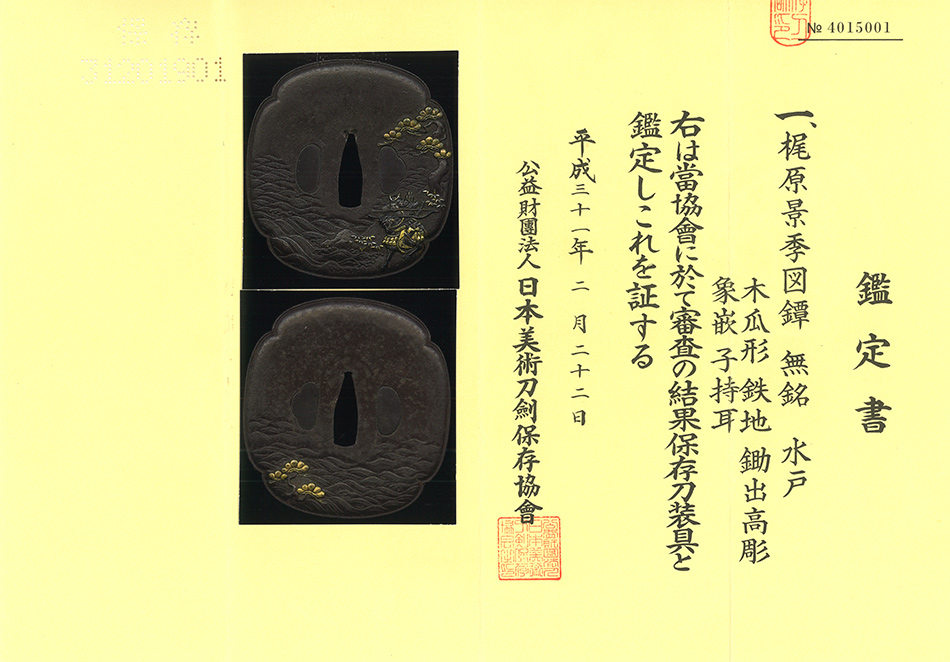 № 4015001
鑑定書
一、梶原景季図鐔 無銘 水戸
木瓜形 鉄地 鋤出高彫
象嵌 子持耳
右は當協會に於て審査の結果保存刀装具と
鑑定しこれを証する
平成三十一年 二月二十二日
公益財團法人 日本美術刀劍保存協會